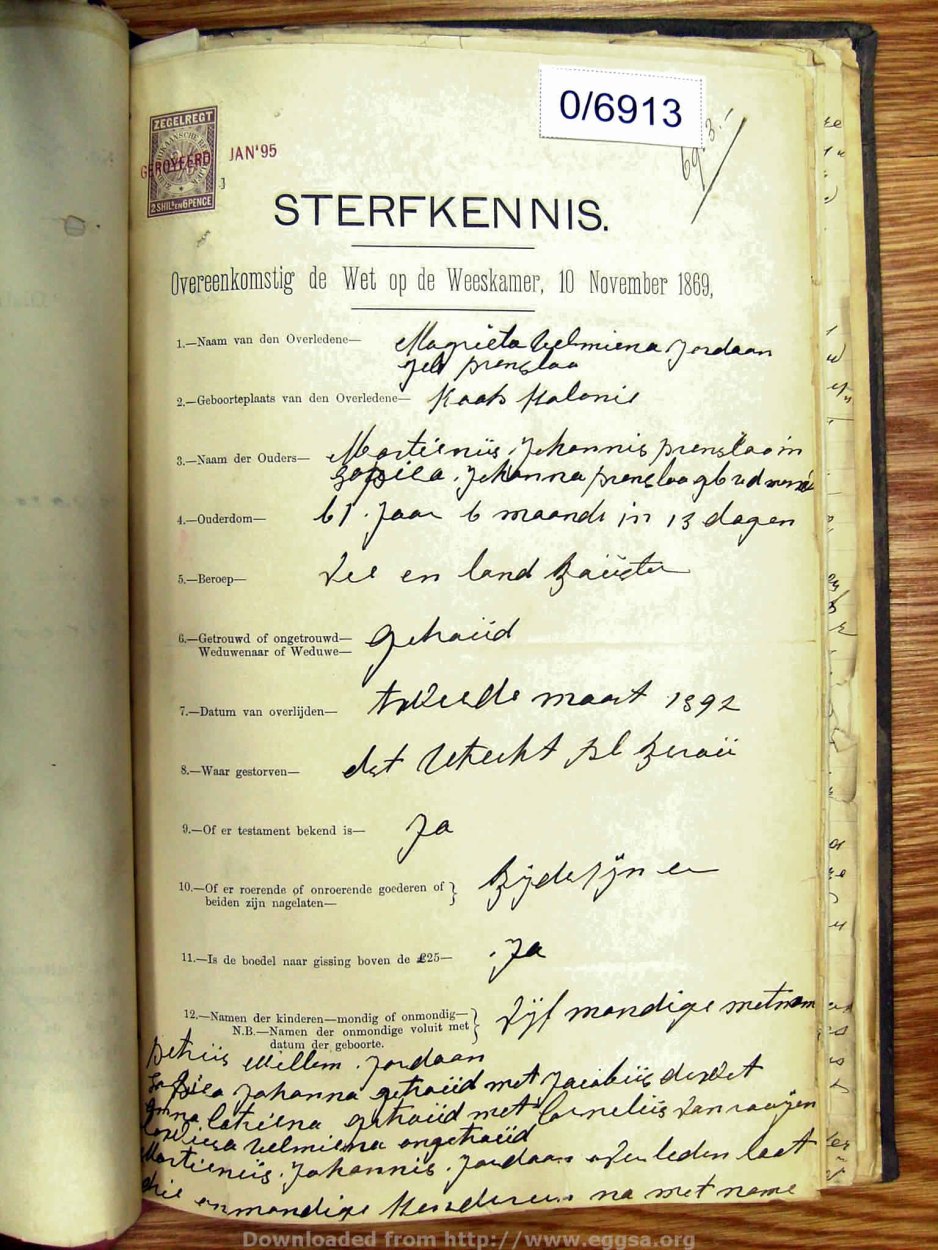 0/6913
6913.
ZEGELREGT
GEROYEERD
JAN'95
2 SHILS EN 6 PENCE
STERFKENNIS.
Overeenkomstig de Wet op de Weeskamer, 10 November 1869,
1.—Naam van den Overledene— Magrieta Velmiena Jordaan
geb prensloo
2.—Geboorteplaats van den Overledene— Kaab Kolonie
3.—Naam der Ouders— Martienüs Johannis prensloo in
Sophiea Johanna prensloo geb
4.—Ouderdom— 61 Jaar 6 maande in 13 dagen
5.—Beroep— Vee en land Boüster
6.—Getrouwd of ongetrouwd— Getraüid
Weduwenaar of Weduwe—
7.—Datum van overlijden— tweede maart 1892
8.—Waar gestorven— dest Utrecht
9.—Of er testament bekend is— Ja
10.—Of er roerende of onroerende goederen of }
beiden zijn nagelaten—
11.—Is de boedel naar gissing boven de £25— Ja
12.—Namen der kinderen—mondig of onmondig— } Vijf mondige met nam
N.B.—Namen der onmondige voluit met
datum der geboorte.
Petrüs Willem Jordaan
Sophiea Johanna getraüid met Jacobüs de Wet
Anna Catriena getraüid met Cornelüs Van raayen
Velmiena ongetraüid
Martienüs Johannis Jordaan oferleden laat
drie onmondige Kenderen na met name
Downloaded from http://www.eggsa.org